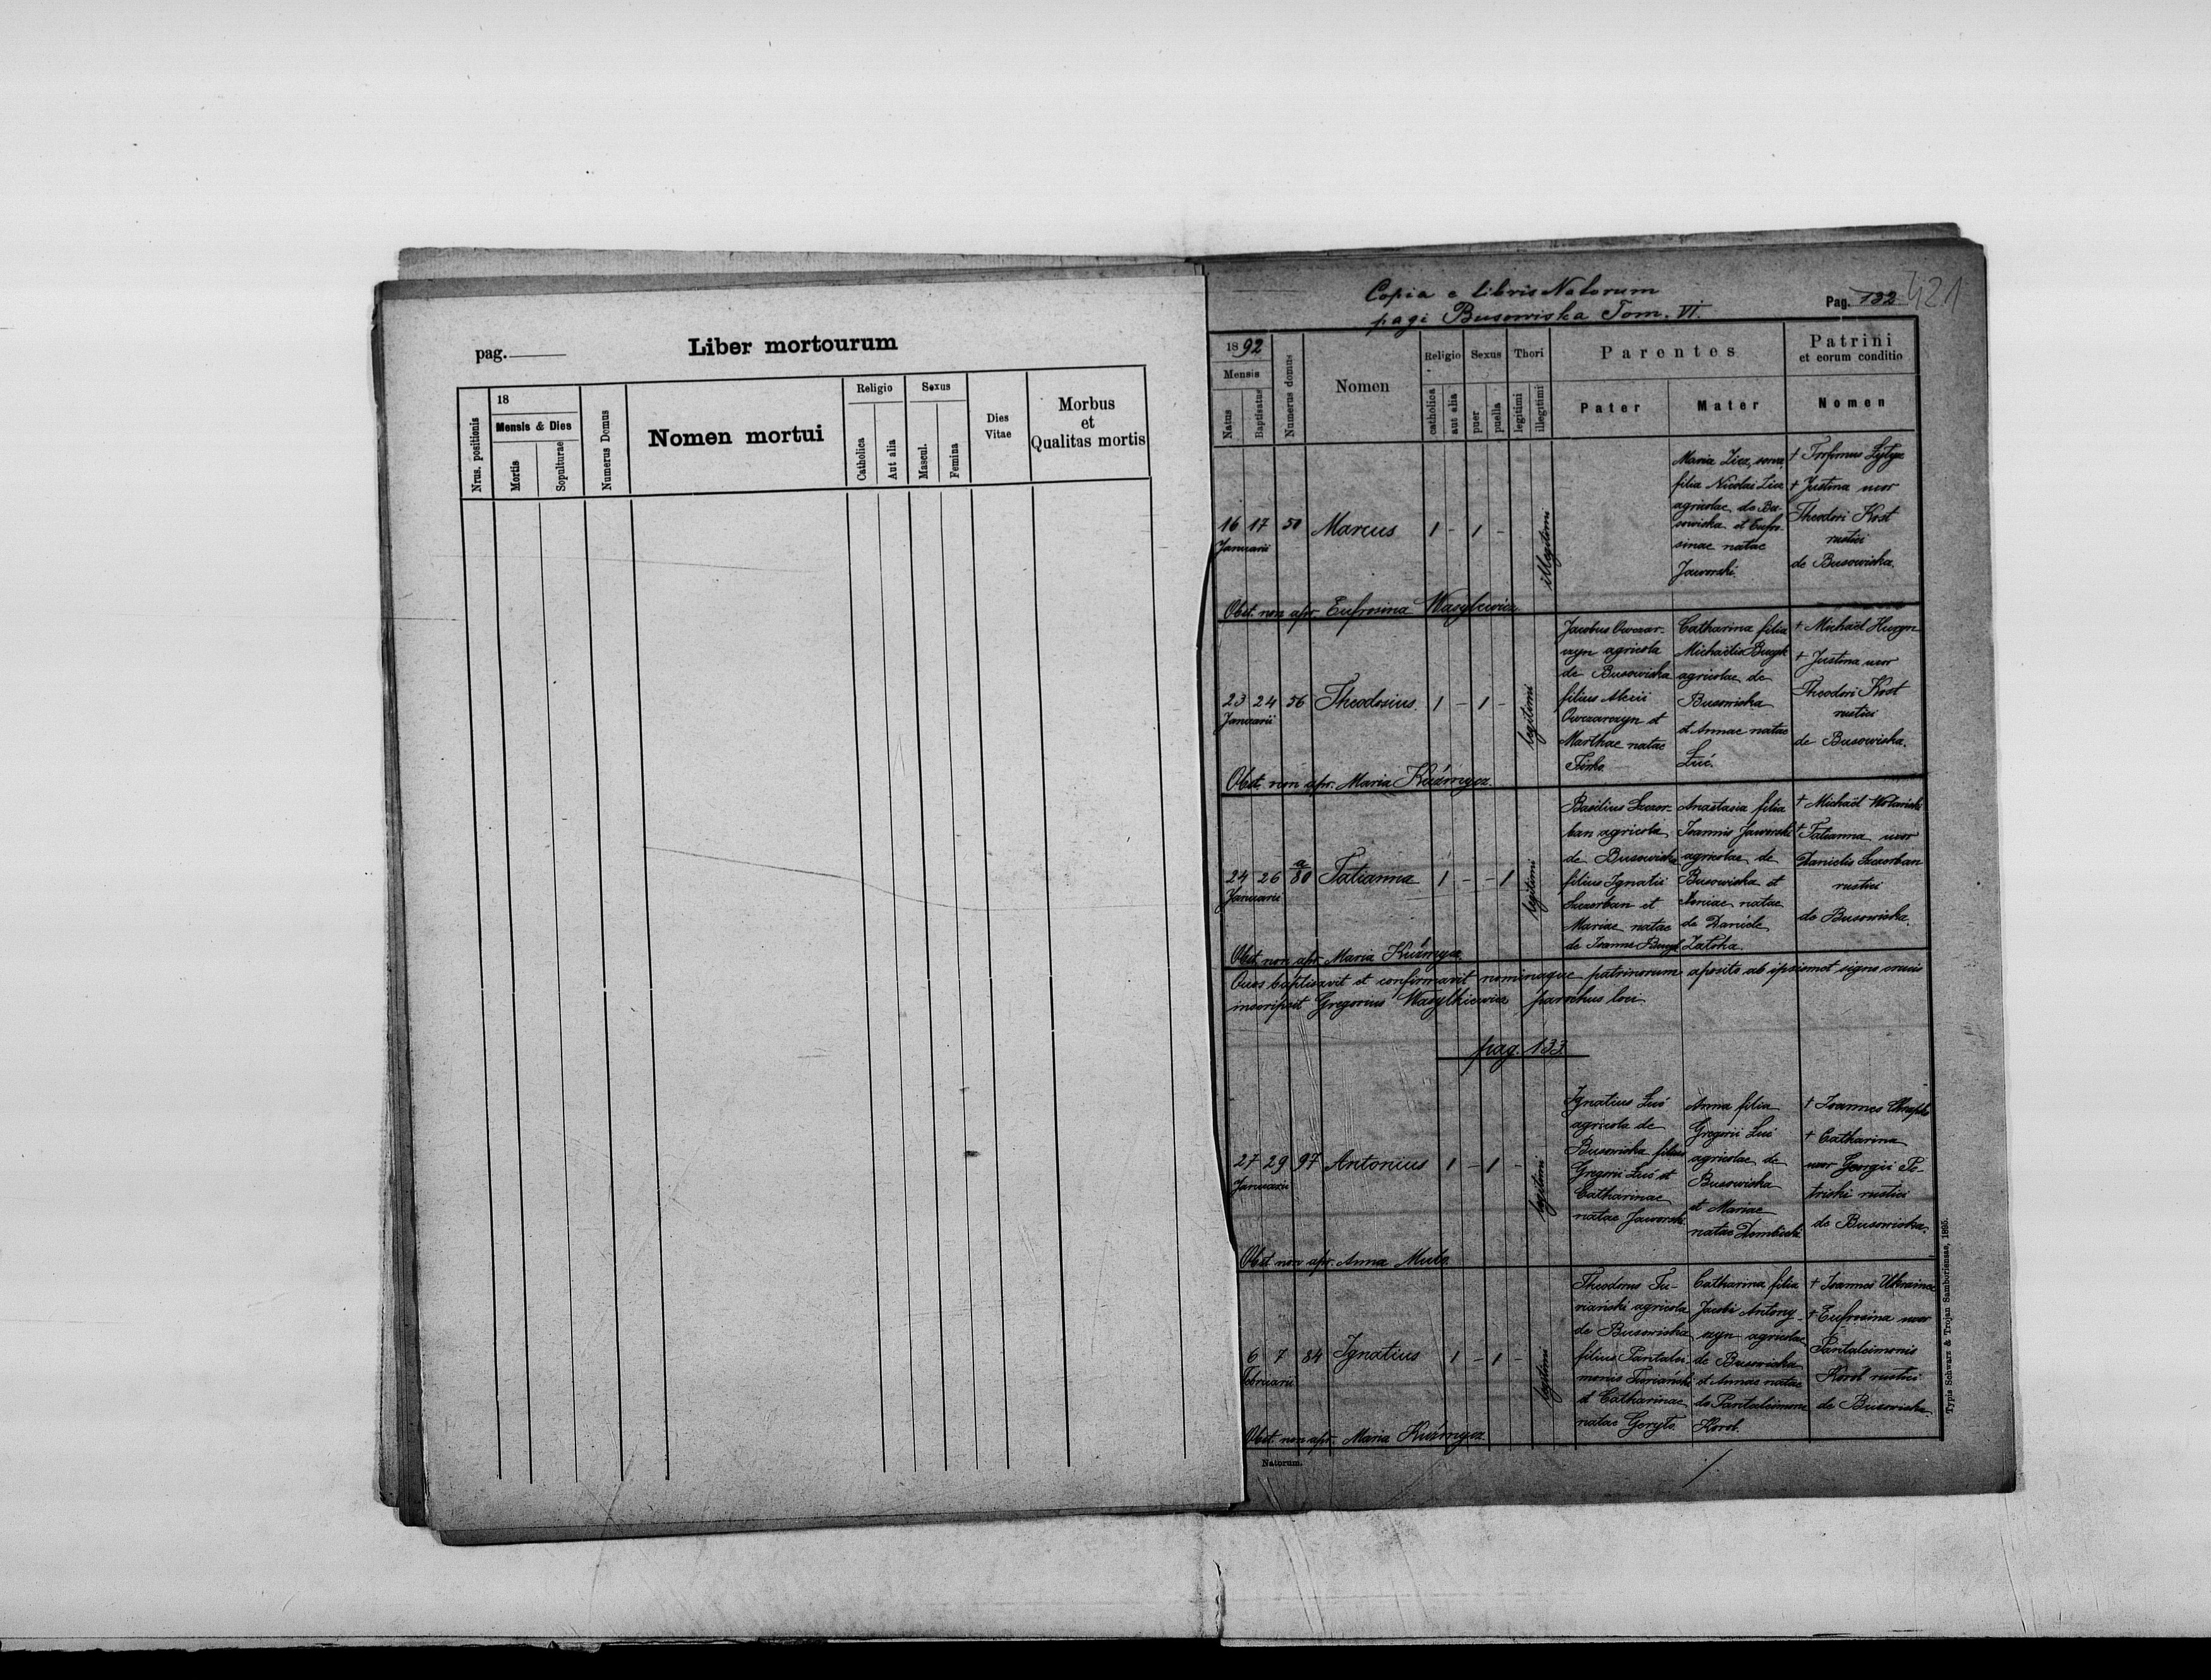 pag.
Liber mortourum
Nrus. positionis
18
Mensis & Dies
Mortis
Sepulturae
Numerus Domus
Nomen mortui
Religio
Catholica
Aut alia
Sexus
Mascul.
Femina
Dies
Vitae
Morbus
et
Qualitas mortis
Copia e libris Natorum
pagi Busowiska Tom. VI.
Pag. 132
421
1892
Mensis
Natus
Baptisatus
Numerus domus
Nomen
Religio
catholica
aut alia
Sexus
puer
puella
Thori
legitimi
illegitimi
Parentes
Pater
Mater
Patrini
et eorum conditio
Nomen
16 17 50 Marcus 1 - 1 - illegitimi
Januarii
Maria
filia Nicolai
agricolae de Bu-
sowiska et Eufro-
sinae natae
Jaworski.
†
† Justina uxor
Theodori Kost
rustici
de Busowiska.
Obst. non apr. Eufrosina Wasylewicz
23 24 56 Theodosius. 1 - 1 - legitimi
Januarii
Jacobus Owczar-
czyn agricola
de Busowiska
filius Alexii
Owczarczyn et
Marthae natae
Catharina filia
Michaëlis
agricolae de
Busowiska
et Annae natae
Łuć.
† Michaël
† Justina uxor
Theodori Kost
rustici
de Busowiska.
Obst. non apr. Maria Kuźmycz.
24 26 a/80 Tatianna 1 - - 1 legitimi
Januarii
Basilius Szczer-
ban agricola
de Busowiska
filius Ignatii
Szczerban et
Mariae natae
de Joanne
Anastasia filia
Joannis Jaworski
agricolae de
Busowiska et
natae
de Daniele
Zatoka.
† Michaël
† Tatianna uxor
Danielis Szczerban
rustici
de Busowiska.
Obst. non apr. Maria Kuźmycz.
Quos baptisavit et confirmavit nominaque patrinorum aposito ab ipsismet signo crucis
inscripsit Gregorius Wasylkiewicz parochus loci.
pag. 133
27 29 97 Antonius 1 - 1 - legitimi
Januarii
Ignatius Łuć
agricola de
Busowiska filius
Gregorii Łuć et
Catharinae
natae Jaworski.
Anna filia
Gregorii Łuć
agricolae de
Busowiska
et Mariae
natae Dembicki
† Joannes
† Catharina
uxor Georgii Pe-
triski rustici
de Busowiska.
Obst. non apr. Anna
6 7 84 Ignatius 1 - 1 - legitimi
Februarii
Theodorus Tu-
riański agricola
de Busowiska
filius Pantalei-
monis Turiański
et Catharinae
natae
Catharina filia
Jacobi Antony-
czyn agricolae
de Busowiska
et Annae natae
de Pantaleimone
Korol.
† Joannes Ukrainec
† Eufrosina uxor
Pantaleimonis
Korol rustici
de Busowiska
Obst. non apr. Maria Kuźmycz
Natorum.
Typis Schwarz & Trojan Samboriensae, 1895.